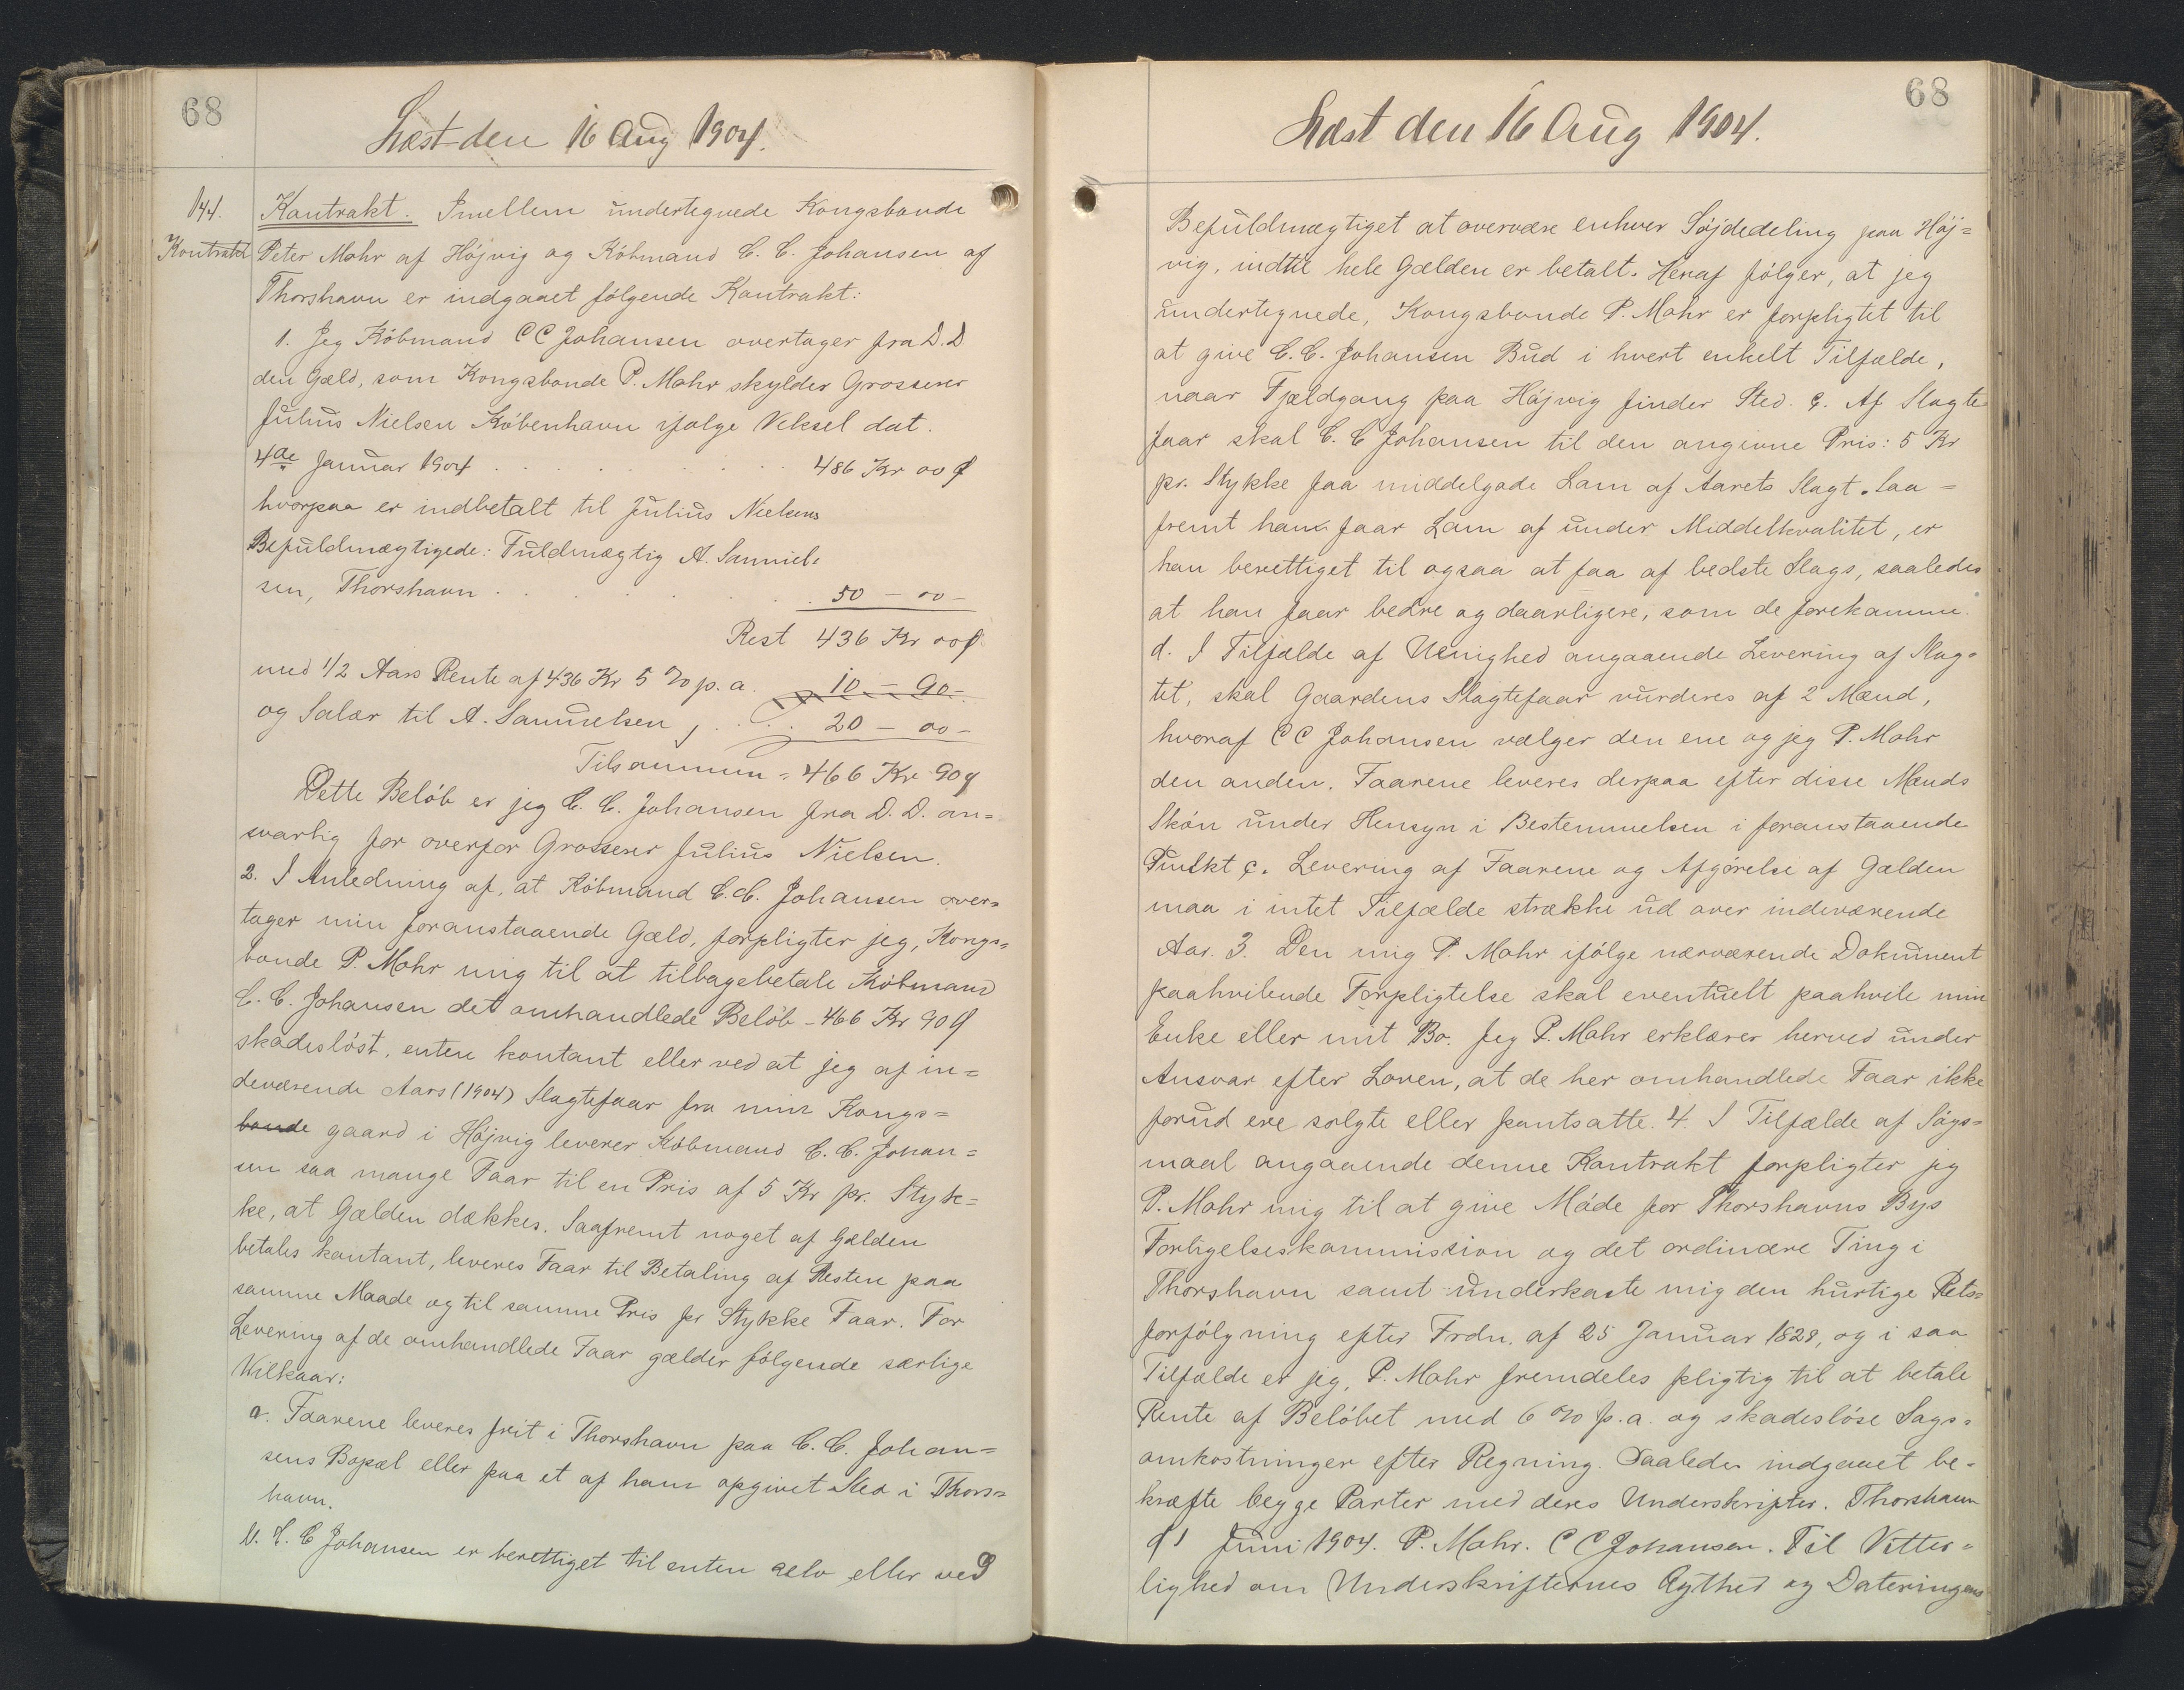 68
Læst den 16 Aug 1904.
144.
Kontrakt
Kontrakt. Imellem undertegnede Kongsbonde
Peter Mohr af Höjvig og Köbmand C. C. Johansen af
Thorshavn er indgaaet fölgende Kontrakt:
1. Jeg Köbmand CC Johansen overtager fra D. D
den Gæld, som Kongsbonde P. Mohr skylder Grosserer
Julius Nielsen Köbenhavn ifølge Veksel dat.
4de Januar 1904 . . . . . . 486 Kr 00 Ø
hvorpaa er indbetalt til Julius Nielsens
Befuldmægtigede: Fuldmægtig A. Samuel-
sen, Thorshavn . . . . . . 50 - 00 -
Rest 436 Kr 00 Ø
med 1/2 Aars Rente af 436 Kr 5 % p. a. 10 - 90 -
og Salær til A. Samuelsen, . . . 20 - 00 -
Tilsammen = 466 Kr 90 Ø
Dette Belöb er jeg C. C. Johansen fra D. D. an=
svarlig for overfor Grosserer Julius Nielsen.
2. I Anledning af, at Köbmand C. C. Johansen over=
tager min foranstaaende Gæld, forpligter jeg, Kongs=
bonde P. Mohr mig til at tilbagebetale Köbmand
C. C. Johansen det omhandlede Belöb - 466 Kr 90 Ø
skadeslöst, enten kontant eller ved at jeg af in=
deværende Aars (1904) Slagtefaar fra min Kongs=
bonde gaard i Höjvig leverer Köbmand C. C. Johan=
sen saa mange Faar til en Pris af 5 Kr pr. Styk=
ke, at Gælden dækkes. Saafremt noget af Gælden
betales kontant, leveres Faar til Betaling af Resten paa
samme Maade og til samme Pris pr Stykke Faar. For
Levering af de omhandlede Faar gælder fölgende særlige
Vilkaar:
a. Faarene leveres frit i Thorshavn paa C. C. Johan=
sens Bopæl eller paa et af ham opgivet Sted i Thors=
havn.
b. C. C Johansen er berettiget til enten selv eller ved
68
Læst den 16 Aug 1904.
Befuldmægtiget at overvære enhver Söjdedeling paa Höj=
vig, indtil hele Gælden er betalt. Heraf fölger, at jeg
undertegnede, Kongsbonde P. Mohr er forpligtet til
at give C. C. Johansen Bud i hvert enkelt Tilfælde,
naar Fjældgang paa Höjvig finder Sted. c. Af Slagte
faar skal C. C Johansen til den angivne Pris: 5 Kr
pr. Stykke faa middelgode Lam af Aarets Slagt. Saa=
fremt han faar Lam af under Middelkvalitet, er
han berettiget til ogsaa at faa af bedste Slags, saaledes
at han faar bedre og daarligere, som de forekomme.
d. I Tilfælde af Uenighed angaaende Levering af Slag=
tet, skal Gaardens Slagtefaar vurderes af 2 Mænd,
hvoraf CC Johansen vælger den ene og jeg P. Mohr
den anden. Faarene leveres derpaa efter disse Mænds
Skön under Hensyn i Bestemmelsen i foranstaaende
Punkt c. Levering af Faarene og Afgörelse af Gælden
maa i intet Tilfælde strække ud over indeværende
Aar. 3. Den mig P. Mohr ifölge nærværende Dokument
paahvilende Forpligtelse skal eventuelt paahvile min
Enke eller mit Bo. Jeg P. Mohr erklærer herved under
Ansvar efter Loven, at de her omhandlede Faar ikke
forud ere solgte eller pantsatte. 4. I Tilfælde af Sögs=
maal angaaende denne Kontrakt forpligter jeg
P. Mohr mig til at give Möde for Thorshavns Bys
Forligelseskommission og det ordinære Ting i
Thorshavn samt underkaste mig den hurtige Rets=
forfölgning efter Frdn. af 25 Januar 1828, og i saa
Tilfælde er jeg, P. Mohr fremdeles pligtig til at betale
Rente af Belöbet med 6 % p. a. og skadeslöse Sags=
omkostninger efter Regning. Saaledes indgaaet be=
kræfte begge Parter med deres Underskrifter. Thorshavn
d' Juni 1904. P. Mohr. CC Johansen. Til Vitter=
lighed om Underskrifternes Ægthed og Dateringens